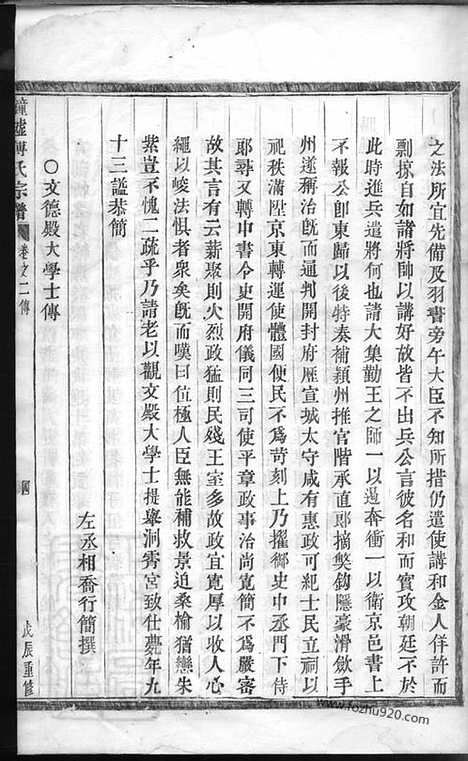 之法所宜先備及羽書旁午大臣不知所措仍遣使講和金人佯許而
剽掠自如諸將帥以講好故皆不出兵公言彼名和而實攻朝廷不於
此時進兵遣將何也請大集勤王之師一以遏奔衝一以衛京邑書上
不報公卽東歸以後特奏補潁州推官階承直郎摘奬鉤隱豪滑歛手
州遂稱治旣而通判開封府歷宣城太守咸有惠政可紀士民立祠以
祀秩滿陞京東轉運使體國便民不爲苛刻上乃擢御史中丞門下侍
郎尋又轉中書令史開府儀同三司使平章政事治尚寬簡不爲嚴審
故其言有云薪聚則火烈政猛則民殘王室多故政宜寬厚以收人心
繩以峻法惧者衆矣旣而嘆曰位極人臣無能補救景迫桑榆猶戀朱
紫豈不愧二疏乎乃請老以觀文殿大學士提舉洞霄宮致仕薨年九
十三謚恭簡
左丞相喬行簡撰
○文德殿大學士傳
鐘墟傅氏宗譜
卷之二傳
四
戊辰重修
www.fozhu920.com